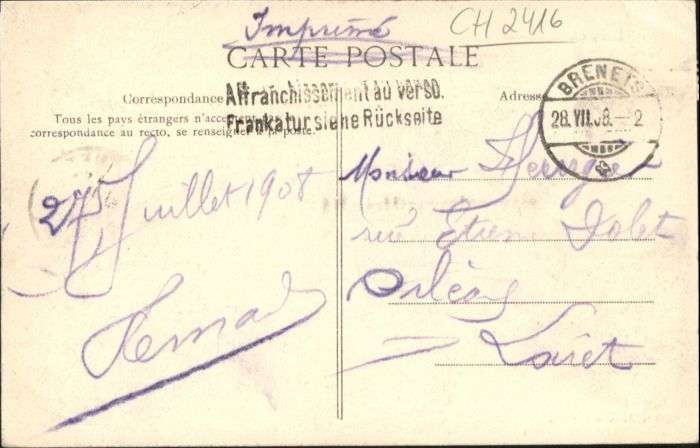 Imprimé
CH 2416
CARTE POSTALE
Correspondance
Affranchissement au verso.
Frankatur siehe Rückseite
Adresse
BRENETS
28.VII.08.–2
Tous les pays étrangers n'acce
correspondance au recto, se renseigner à la poste.
27 Juillet 1908
Monsieur
rue Etienne Dolet
Orléans
Loiret